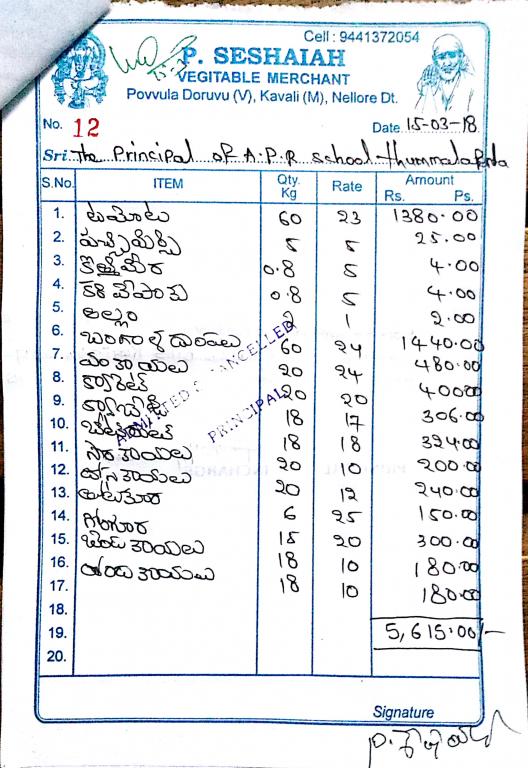 Cell : 9441372054
P. SESHAIAH
VEGITABLE MERCHANT
Povvula Doruvu (V), Kavali (M), Nellore Dt.
No. 12 Date 15-03-18
Sri. The Principal of A.P.R school Thummalapenta
S.No. ITEM Qty. Kg Rate Amount Rs. Ps.
1. టమోటు 60 23 1380.00
2. పచ్చిమిర్చి 5 5 25.00
3. కొత్తిమీర 0.8 5 4.00
4. కరివేపాకు 0.8 5 4.00
5. అల్లం 2 1 2.00
6. బంగాళదుంపలు 60 24 1440.00
7. వంకాయలు 20 24 480.00
8. క్యారెట్ 20 20 400.00
9. క్యాబేజి 18 17 306.00
10. బీట్రూట్ 18 18 324.00
11. సొరకాయలు 20 10 200.00
12. దోసకాయలు 20 12 240.00
13. 6 25 150.00
14. గోంగూర 15 20 300.00
15. బెండకాయలు 18 10 180.00
16. దొండకాయలు 18 10 180.00
17.
18.
19. 5,615.00/-
20.
CANCELLED
PRINCIPAL
Signature